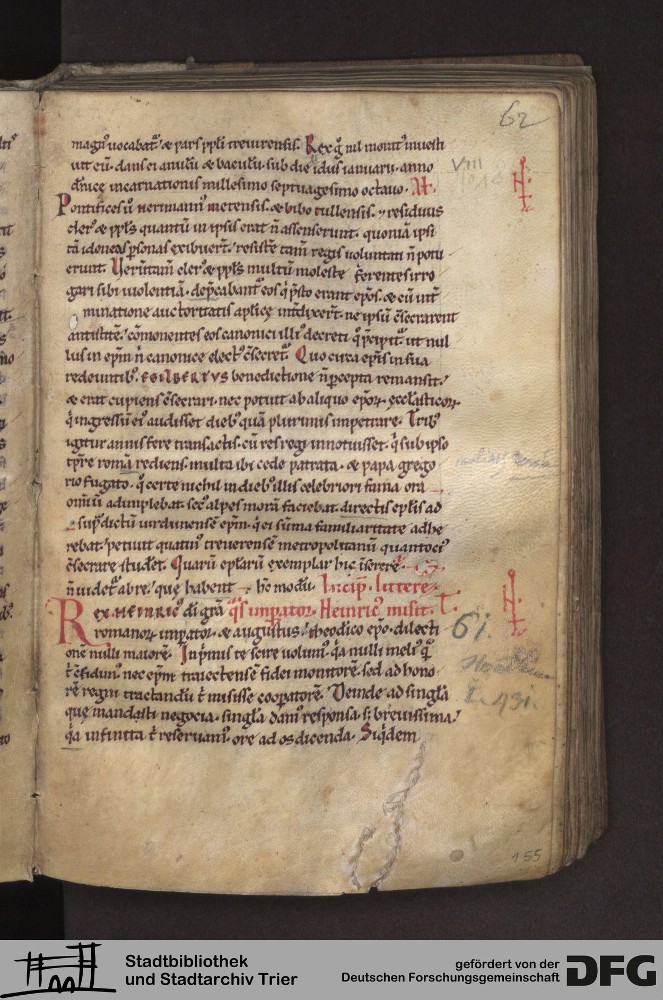 62
magn᷒ vocabat᷒ & pars ppli treuirensis. Rex g̃ nil morat᷒ inuesti
uit eū. dans ei anulū & baculū. sub die idus ianuarij. anno
VIII
dn̄ice incarnationis millesimo septuagesimo octauo.
Pontifices ū herimann᷒ metensis. & bibo tullensis. ⁊ residuus
cler᷒ & ppl̄s quantū in ipsis erat n̄ assenserunt. quoniā ipsi
tā idoneas psonas exibuer̄t. resistē tam̄ regis uoluntati n̄ potu
erunt. Verūtam̄ cler᷒ & ppl̄s multū moleste ferentes irro
gari sibi uiolentiā. dep̄cabant᷒ eos q̇ p̄sto erant ep̄os. & eū int̄
minatione auctoritatis aplicę int̄dixer̄t. ne ipsū c̄secrarent
antistitē. cōmonentes eos canonici illi᷒ decreti q̇ p̄cipit᷒. ut nul
lus in ep̄m n̄ canonice elect᷒ c̄secret᷒. Quo circa ep̄is in sua
redeuntib᷒. EGILBERTVS benedictione n̄ pcepta remansit.
& erat cupiens c̄secrari. nec potuit ab aliquo ep̄oꝝ. ęcclasticoꝝ
q̇ ingressū ei᷒ audisset dieb᷒ quā plurimis impetrare. Trib᷒
igitur annis fere transactis. cū res regi innotuisset. q̇ sub ipso
tp̄re romā rediens. multa ibi cede patrata. & papa grego
rio fugato. q̇ certe nichil in dieb᷒ illis celebriori fama ora
omiū adimplebat. sec᷒ alpes morā faciebat. directis ep̄lis ad
sup̄dictū uirdunensē ep̄m. q̇ ei sūma familiaritate adhe
rebat. petiuit quatin᷒ treuerensē metropolitanū quantoci᷒
c̄secrare studet. Quarū ep̄larū exemplar hic īserere
n̄ uidet᷒ abre. que habent h̄c modū. Incip̄. littere.
Rex HEINRIC᷒ dī grā q̄s imp̄ator. Heinric᷒ misit.
61.
romanoꝝ imp̄ator. & augustus. theodico ep̄o. dilecti
onē nulli maiorē. Inp̄mis te scire uolum᷒. q̇a nulli meli᷒ q̄
t̄ c̄fidim᷒ nec ep̄m traiectensē fidei monitorē. sed ad hono
rē regni tractandū t̄ misisse coopatorē. Deinde ad singl̄a
quę mandasti negocia. singl̄a dam᷒ responsa. s; breuissima.
q̇a infinita t̄ reseruam᷒. ore ad os dicenda. Siq̇dem
155
Stadtbibliothek
und Stadtarchiv Trier
gefördert von der
Deutschen Forschungsgemeinschaft
DFG